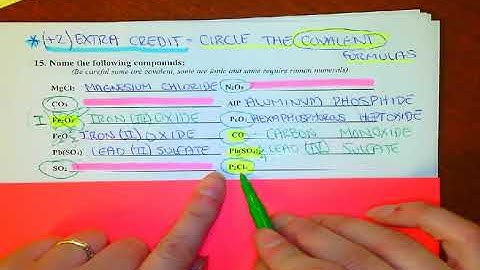 *(+2) EXTRA CREDIT - CIRCLE THE COVALENT
FORMULAS
15. Name the following compounds:
(Be careful some are covalent, some are ionic and some require roman numerals)
MgCl₂ MAGNESIUM CHLORIDE N₂O₅
CO₂ AlP ALUMINUM PHOSPHIDE
I Fe₂O₃ IRON (III) OXIDE P₆O₇ HEXAPHOSPHOROUS HEPTOXIDE
FeO IRON (II) OXIDE CO - CARBON MONOXIDE
Pb(SO₄) LEAD (II) SULFATE Pb(SO₄)₂ LEAD (IV) SULFATE
SO₂ P₂Cl